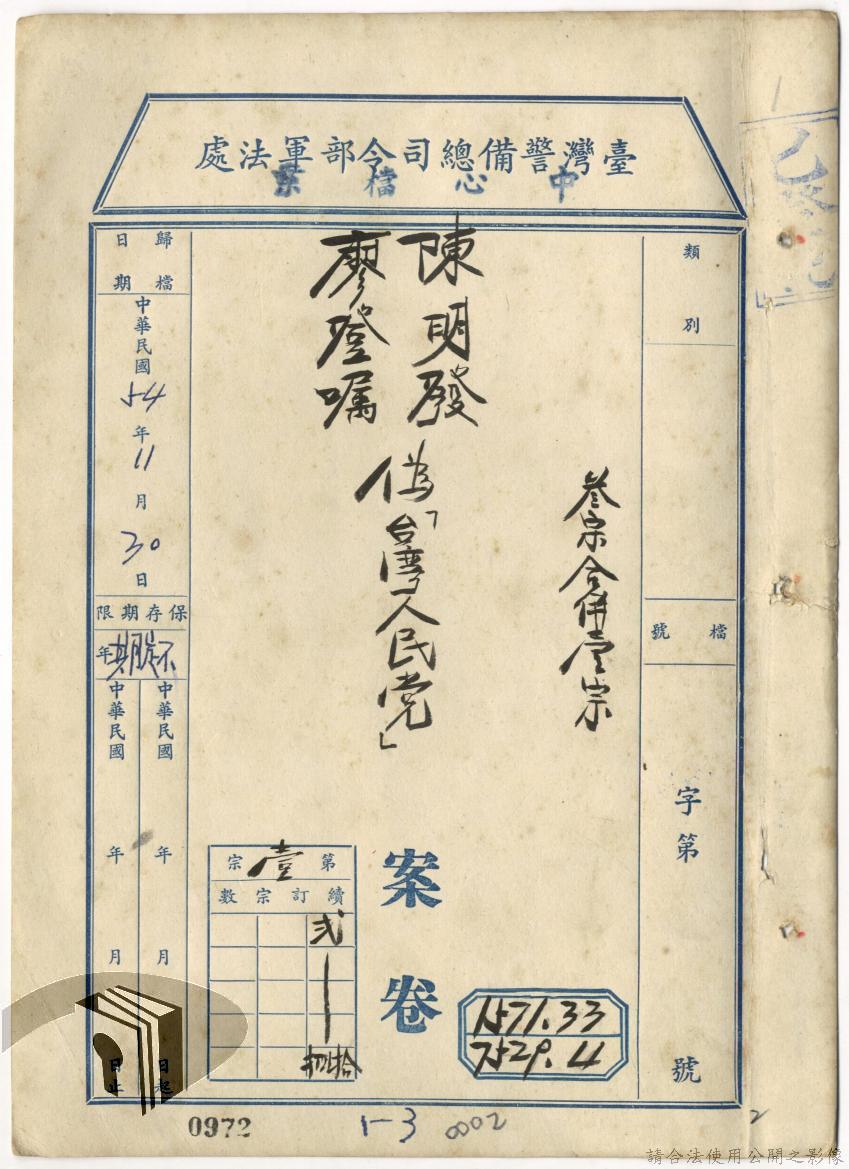 臺灣警備總司令部軍法處
中心檔案
類別
檔號
字第
號
叁宗合併壹宗
陳明發
廖登嘱
偽「台湾人民党」
案卷
第壹宗
續訂宗數
弍
1571.33
7529.4
歸檔日期
中華民國54年11月30日
保存期限
不定期年
中華民國 年 月 日起
中華民國 年 月 日止
0972
1-3
0002
2
請合法使用公開之影像